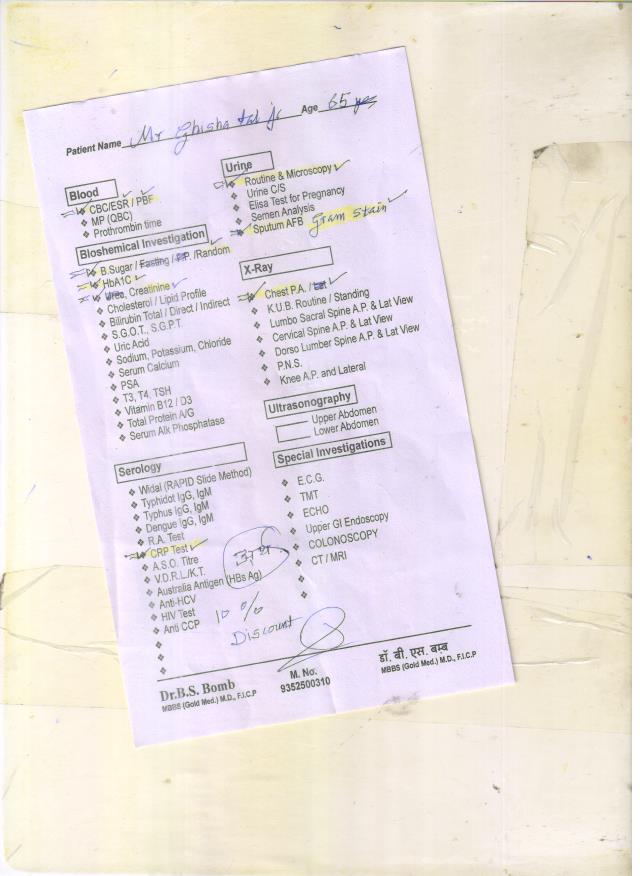 Patient Name Mr Ghisha Lal ji Age 65 yrs
Blood
CBC/ESR / PBF
MP (QBC)
Prothrombin time
Bioshemical Investigation
B.Sugar / Fasting / P.P. /Random
HbA1C
Urea, Creatinine
Cholesterol / Lipid Profile
Bilirubin Total / Direct / Indirect
S.G.O.T., S.G.P.T.
Uric Acid
Sodium, Potassium, Chloride
Serum Calcium
PSA
T3, T4, TSH
Vitamin B12 / D3
Total Protein A/G
Serum Alk Phosphatase
Serology
Widal (RAPID Slide Method)
Typhidot IgG, IgM
Typhus IgG, IgM
Dengue IgG, IgM
R.A. Test
CRP Test
A.S.O. Titre
V.D.R.L/K.T.
Australia Antigen (HBs Ag)
Anti-HCV
HIV Test
Anti CCP
Urine
Routine & Microscopy
Urine C/S
Elisa Test for Pregnancy
Semen Analysis
Sputum AFB Gram Stain
X-Ray
Chest P.A. / Lat
K.U.B. Routine / Standing
Lumbo Sacral Spine A.P. & Lat View
Cervical Spine A.P. & Lat View
Dorso Lumber Spine A.P. & Lat View
P.N.S.
Knee A.P. and Lateral
Ultrasonography
Upper Abdomen
Lower Abdomen
Special Investigations
E.C.G.
TMT
ECHO
Upper GI Endoscopy
COLONOSCOPY
CT / MRI
10 %
Discount
Dr.B.S. Bomb
MBBS (Gold Med.) M.D., F.I.C.P
M. No.
9352500310
डॉ. बी. एस. बम्ब
MBBS (Gold Med.) M.D., F.I.C.P